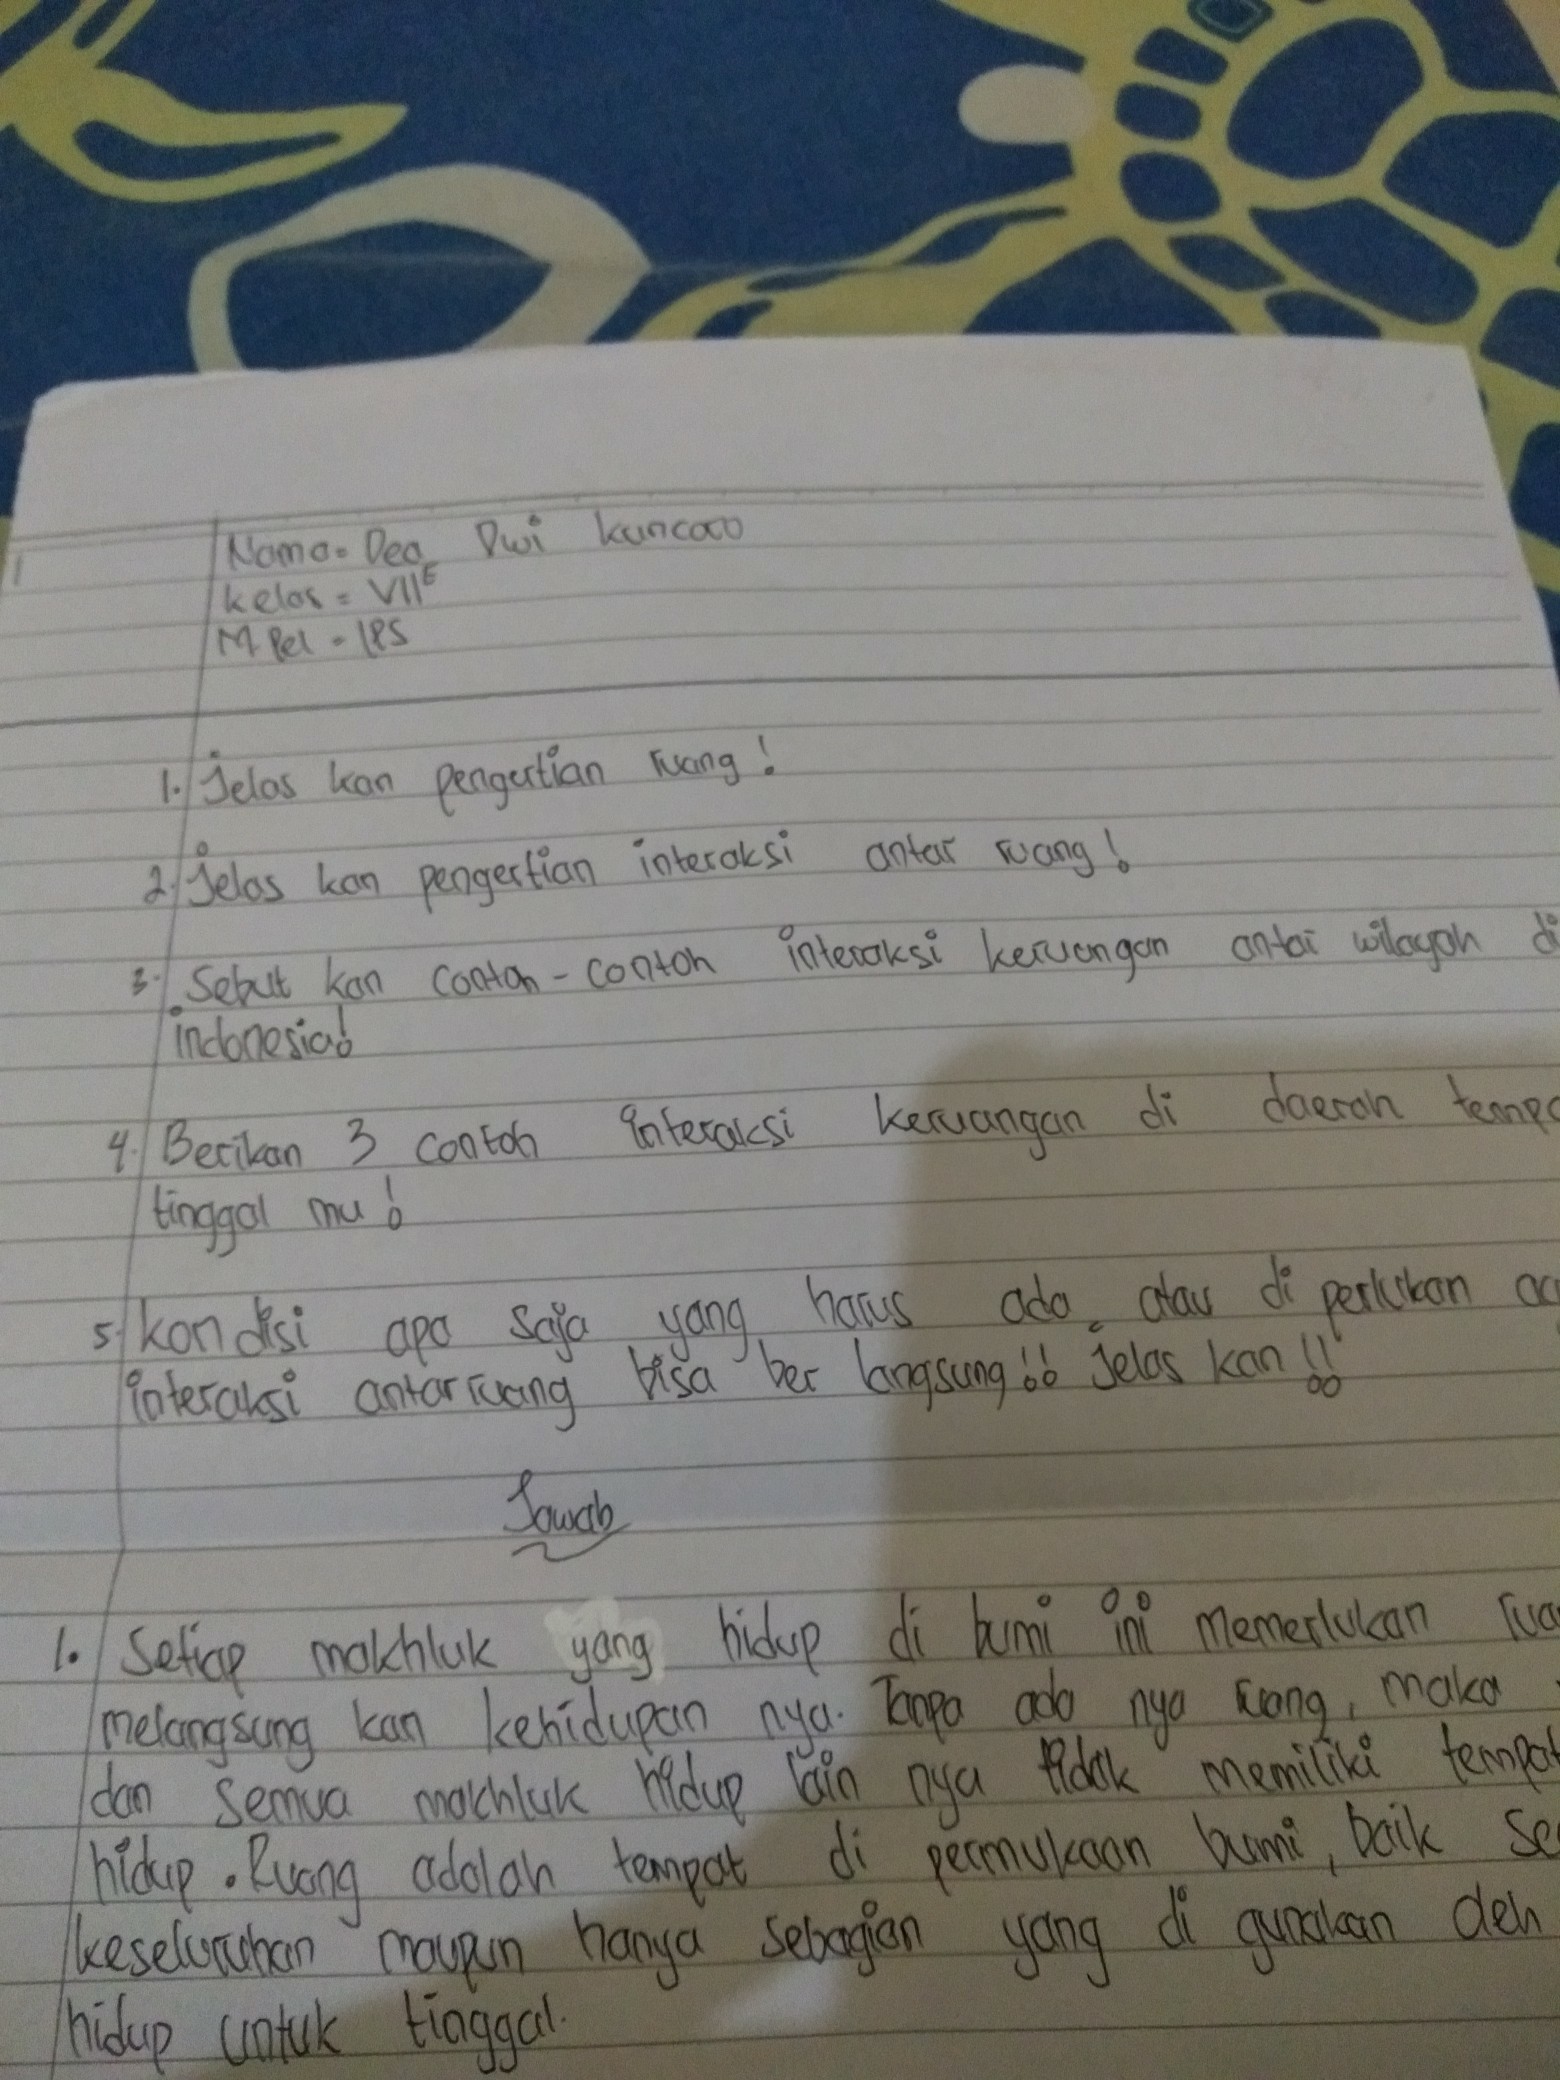 Nama = Dea Dwi kuncoro
kelas = VII E
M Pel = IPS
1. Jelas kan pengertian ruang!
2. Jelas kan pengertian interaksi antar ruang!
3. Sebut kan contoh - contoh interaksi keruangan antar wilayah di
indonesia!
4. Berikan 3 contoh interaksi keruangan di daerah tempa
tinggal mu!
5. kondisi apa saja yang harus ada, atau di perlukan
interaksi antar ruang bisa ber langsung!! Jelas kan!!
Jawab
1. Setiap makhluk yang hidup di bumi ini memerlukan rua
melangsung kan kehidupan nya. Tanpa ada nya ruang, maka
dan semua makhluk hidup lain nya tidak memiliki tempat
hidup. Ruang adalah tempat di permukaan bumi, baik se
keseluruhan maupun hanya sebagian yang di gunakan oleh
hidup untuk tinggal.